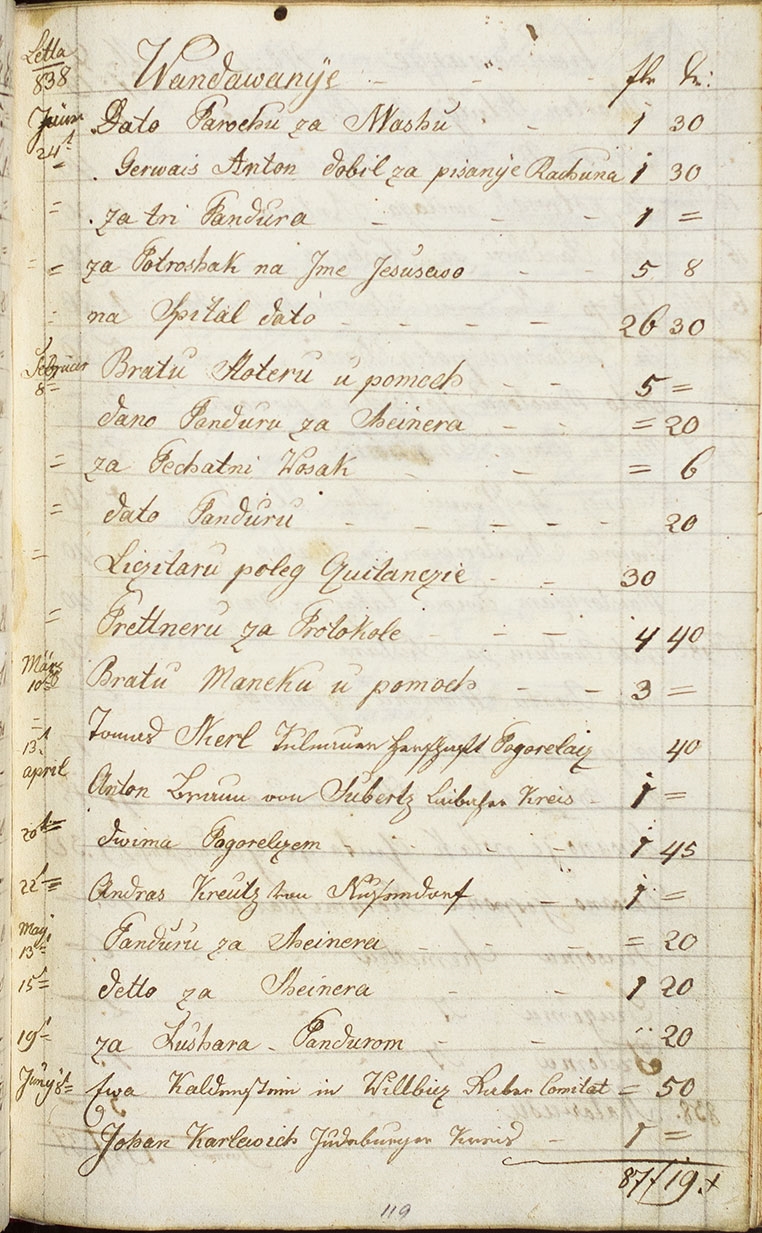 Letta 838 Wandawanye fl kr:
Juni 24t Dato Parochu za Mashu 1 30
= Gerwais Anton dobil za pisanye Rachuna 1 30
= za tri Pandura 1 =
= za Potroshak na Jme Jesusewo 5 8
= na Spital dato 26 30
Februar 8t Bratu Moteru u pomoch 5 =
dano Panduru za Sheinera = 20
= za Pechatni Vosak = 6
= dato Panduru 20
= Liczitaru poleg Quitanczie 30
= Prettneru za Protokole 4 40
März 10t Bratu Maneku u pomoch 3 =
= 13t Tomas Skerl Herrschaft Pogorelaiz 40
april Anton von Subertz Laibacher Kreis 1 =
20t= dwima Pogorelczem 1 45
22t= Andras Kreutz von 1 =
May 13t= Panduru za Sheinera = 20
15t= detto za Sheinera 1 20
19t za Lushara Pandurom 20
Juny 8t= Ewa Kaldenstein in Willbiz Comitat = 50
Johan Karlewich Judenburger Kreis 1 =
87f 19x
119